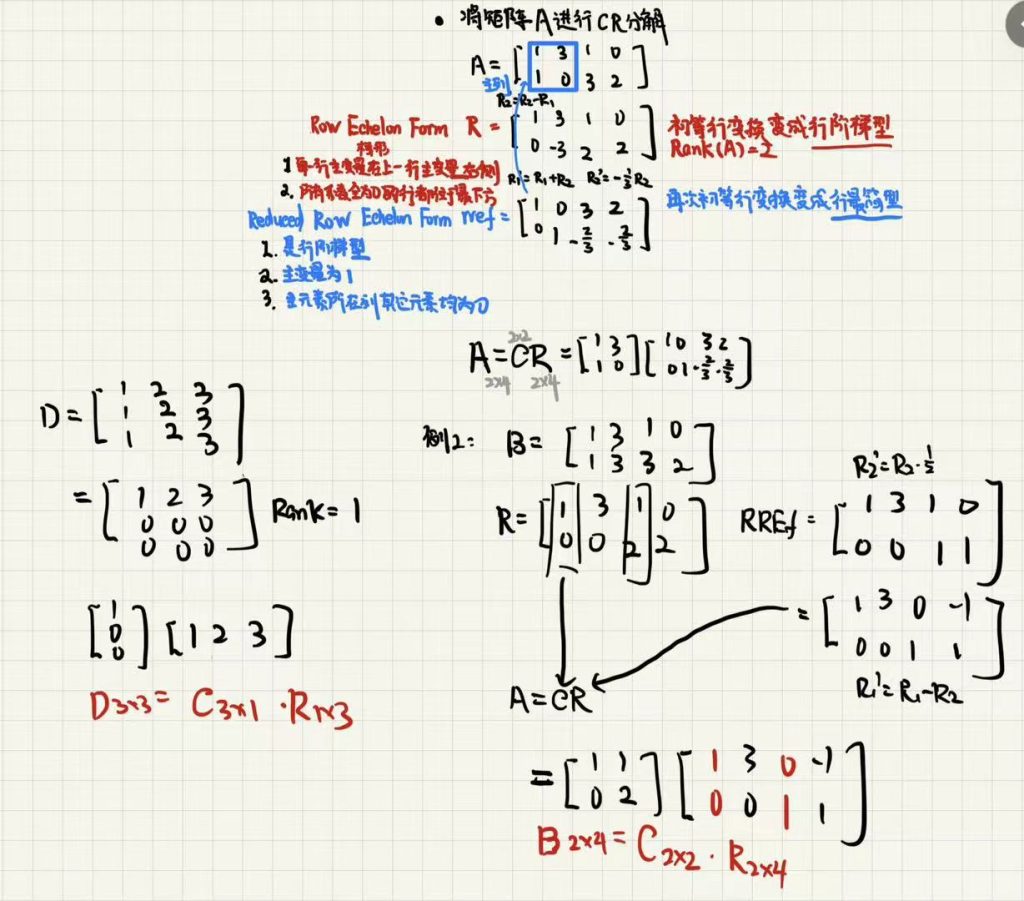 • 将矩阵A进行CR分解
A = [ 1 3 1 0
1 0 3 2 ]
主列
R₂=R₂-R₁
Row Echelon Form R = [ 1 3 1 0
0 -3 2 2 ]
初等行变换变成行阶梯型
Rank(A)=2
1. 每一行主变量在上一行主变量右侧
2. 所有元素全为0的行都位于最下方
R₁'=R₁+R₂ R₂'=-⅓R₂
再次初等行变换变成行最简型
Reduced Row Echelon Form rref = [ 1 0 3 2
0 1 -2/3 -2/3 ]
1. 是行阶梯型
2. 主变量为1
3. 主元素所在列其它元素均为0
A = CR = [ 1 3
1 0 ] [ 1 0 3 2
0 1 -2/3 -2/3 ]
2x2
2x4 2x4
D = [ 1 2 3
1 2 3
1 2 3 ]
= [ 1 2 3
0 0 0
0 0 0 ] Rank = 1
[ 1
0
0 ] [ 1 2 3 ]
D3x3 = C3x1 · R1x3
例2: B = [ 1 3 1 0
1 3 3 2 ]
R = [ 1 3 1 0
0 0 2 2 ]
R₂'=R₂·½
RREf = [ 1 3 1 0
0 0 1 1 ]
= [ 1 3 0 -1
0 0 1 1 ]
R₁'=R₁-R₂
A = CR
= [ 1 1
0 2 ] [ 1 3 0 -1
0 0 1 1 ]
B2x4 = C2x2 · R2x4